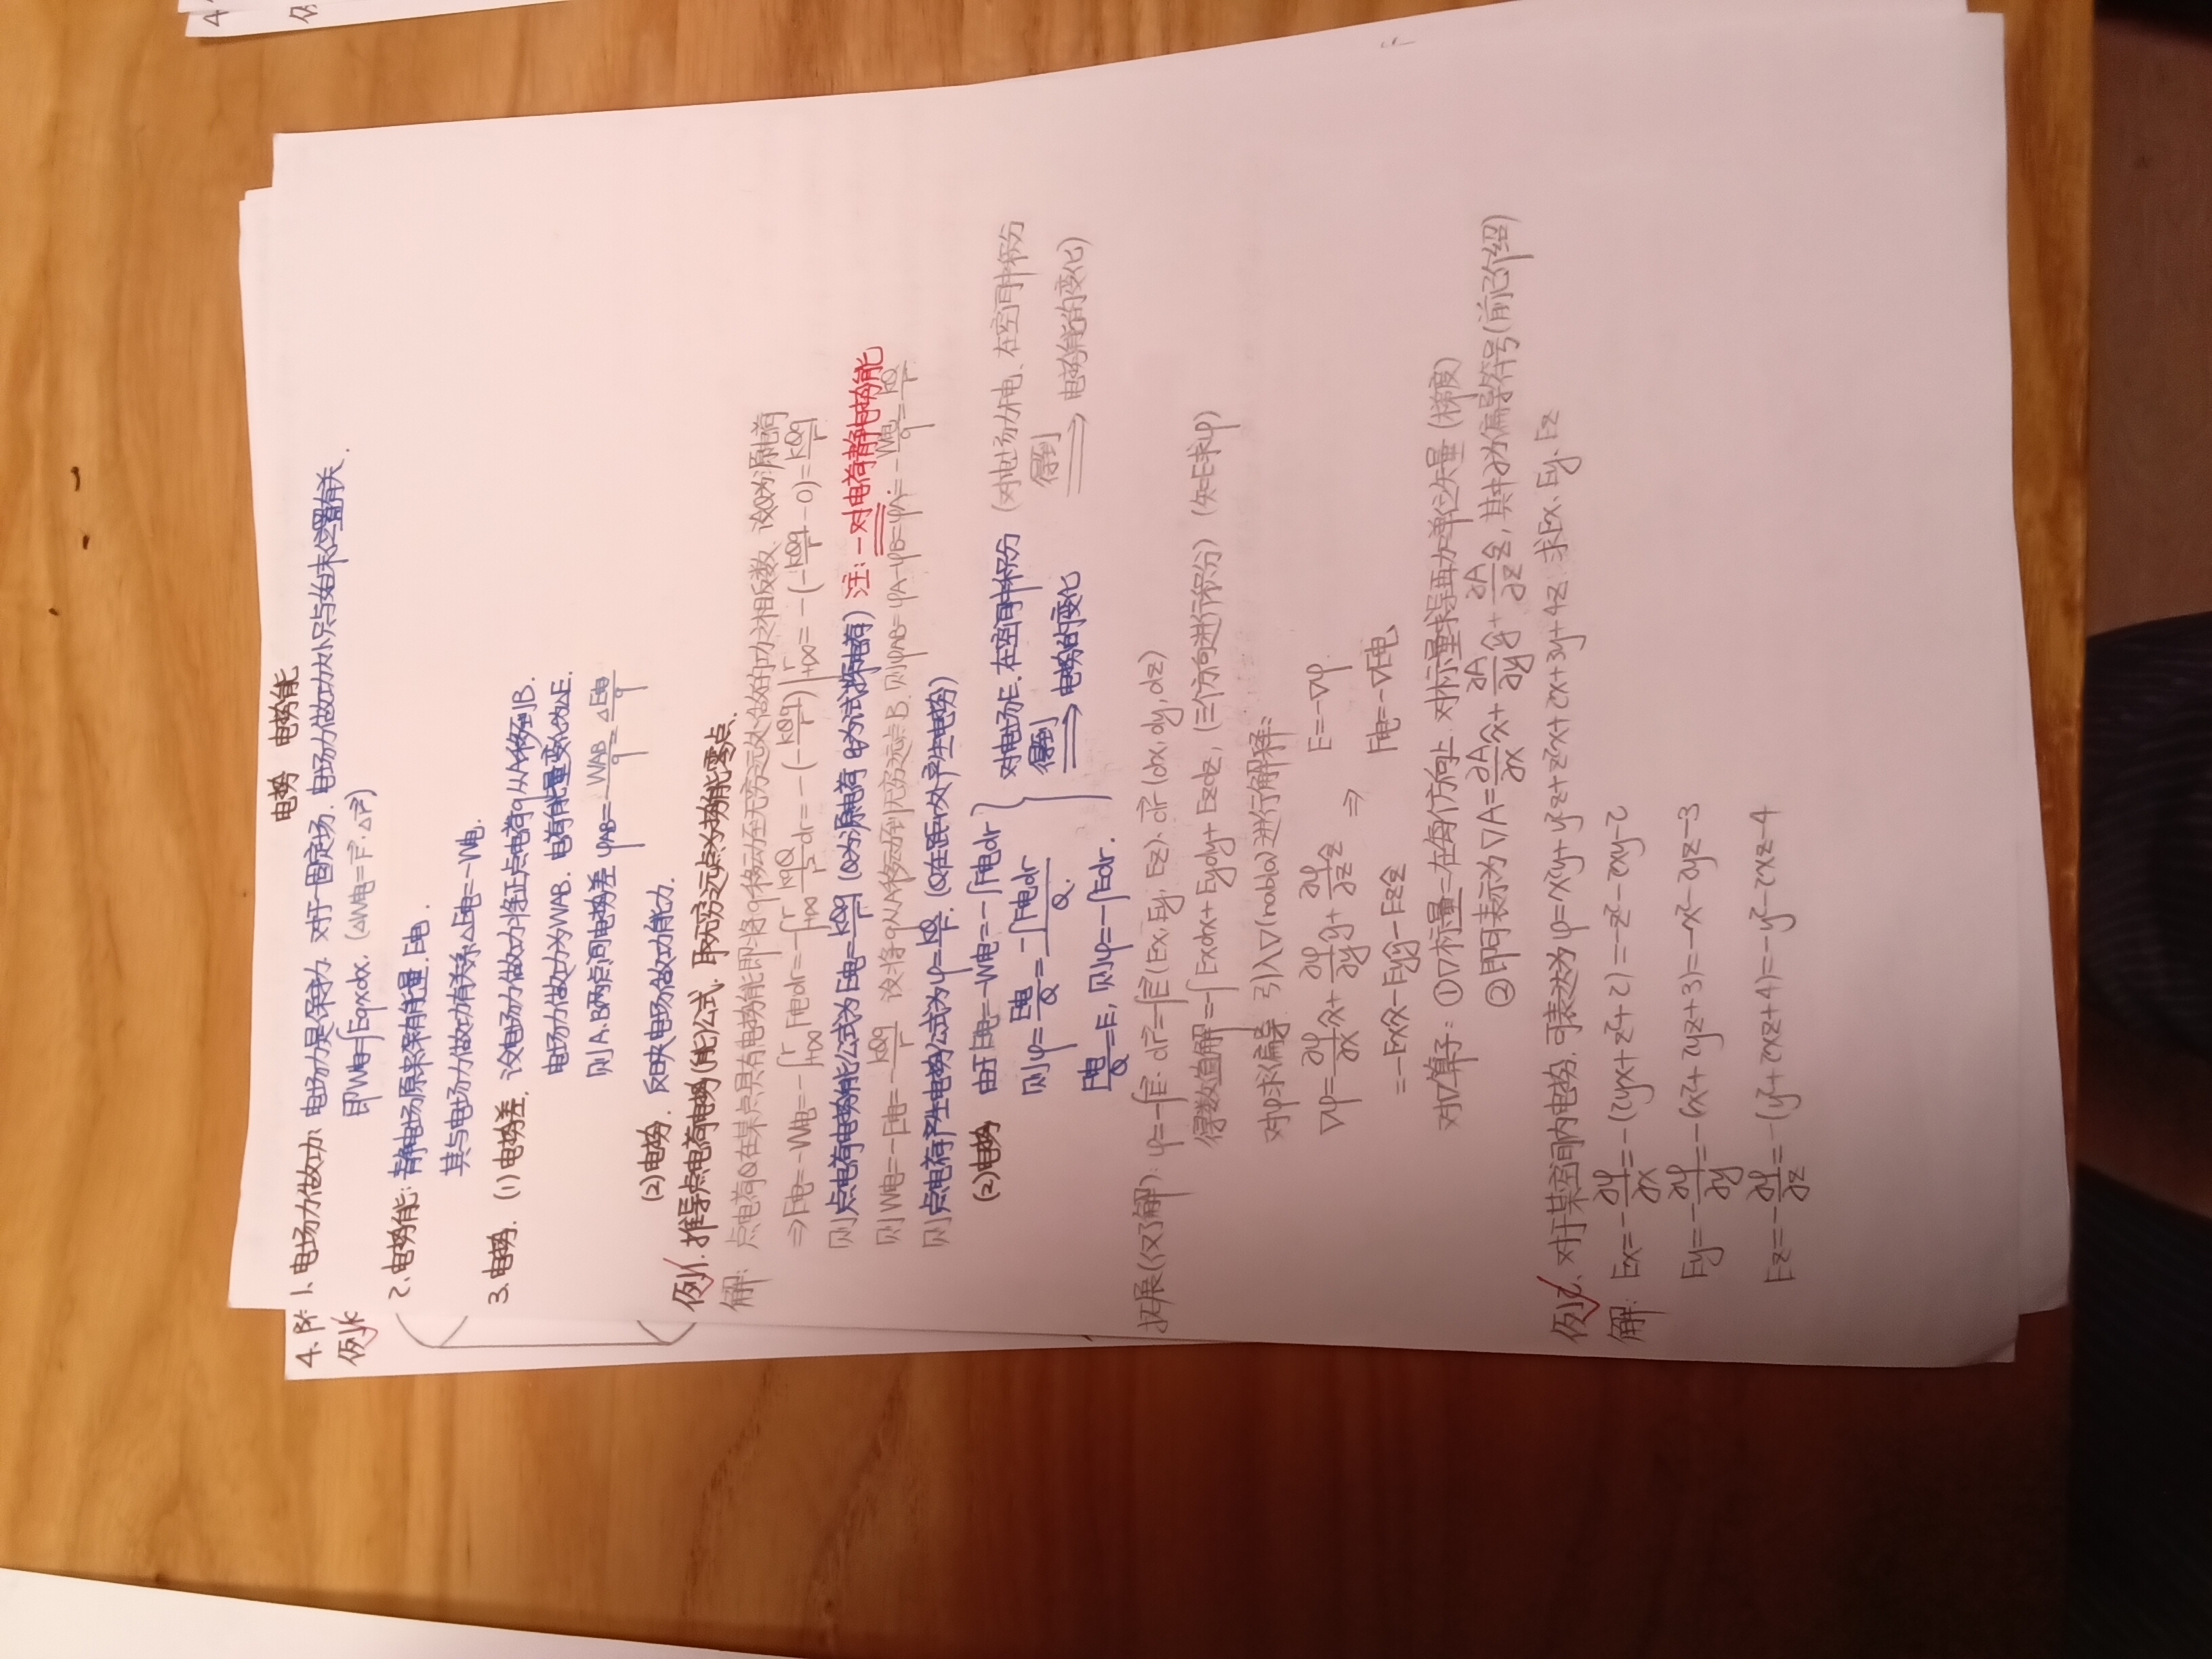 电势 电势能
1、电场力做功、电场力是保守力. 对于一固定场. 电场力做功大小只与始末位置有关.
即W电=∫Eqxdx. (ΔW电=F⃗·Δr⃗)
2.电势能: 静电场原来保有能量. E电.
其与电场力做功有关系ΔE电=-W电.
3.电势. (1)电势差. 设电场力做功将正点电荷q从A移到B.
电场力做处功为WAB. 电荷能量变化为ΔE.
则A.B两点间电势差 φAB=WAB/q=ΔE电/q
(2)电势. 反映电场做功能力.
例1. 推导点电荷电势(能)公式. 取无穷远点为势能零点.
解: 点电荷Q在某点具有电势能即将q移动至无穷远处做的功之相反数. 设Q为源电荷
⇒E电=-W电=-∫_{+∞}^{r}F电dr=-∫_{+∞}^{r}kQq/r²dr=-(-kQq/r)|_{+∞}^{r}=-(-kQq/r-0)=kQq/r
则点电荷电势能公式为E电=kQq/r(Q为源电荷 q为试探电荷) 注:一对电荷静电势能
则W电=-E电=-kQq/r 设将q从A移动到无穷远点B. 则φAB=φA-φB=φA=-W电/q=kQ/r
则点电荷产生电势公式为φ=kQ/r. (Q在距r处产生电势)
(2)电势 由于E电=-W电=-∫F电dr
则φ=E电/Q=-∫F电dr/Q.
F电/Q=E, 则φ=-∫Edr.
对电场E.在空间中积分 得到⟹电势的变化
(对电场力F电、在空间中积分 得到⟹电势能的变化)
拓展(仅了解): φ=-∫E⃗·dr⃗=-∫E⃗(Ex,Ey,Ez)·dr⃗(dx,dy,dz)
得数值解=-∫Exdx+Eydy+Ezdz, (三个方向进行积分) (知E求φ)
对φ求偏导. 引入∇(nabla)进行解释:
∇φ=∂φ/∂x x̂+∂φ/∂y ŷ+∂φ/∂z ẑ E=-∇φ.
=-Exx̂-Eyŷ-Ezẑ ⇒ F电=-∇E电、
对∇算子: ①∇标量=在每个方向上. 对标量求导再加单位矢量(梯度)
②即可表示为∇A=∂A/∂x x̂+∂A/∂y ŷ+∂A/∂z ẑ, 其中∂为偏导符号(前已介绍)
例2. 对于某空间内电势. 可表达为φ=x²y+y²z+z²x+2x+3y+4z 求Ex、Ey、Ez
解: Ex=-∂φ/∂x=-(2yx+z²+2)=-z²-2xy-2
Ey=-∂φ/∂y=-(x²+2yz+3)=-x²-2yz-3
Ez=-∂φ/∂z=-(y²+2xz+4)=-y²-2xz-4